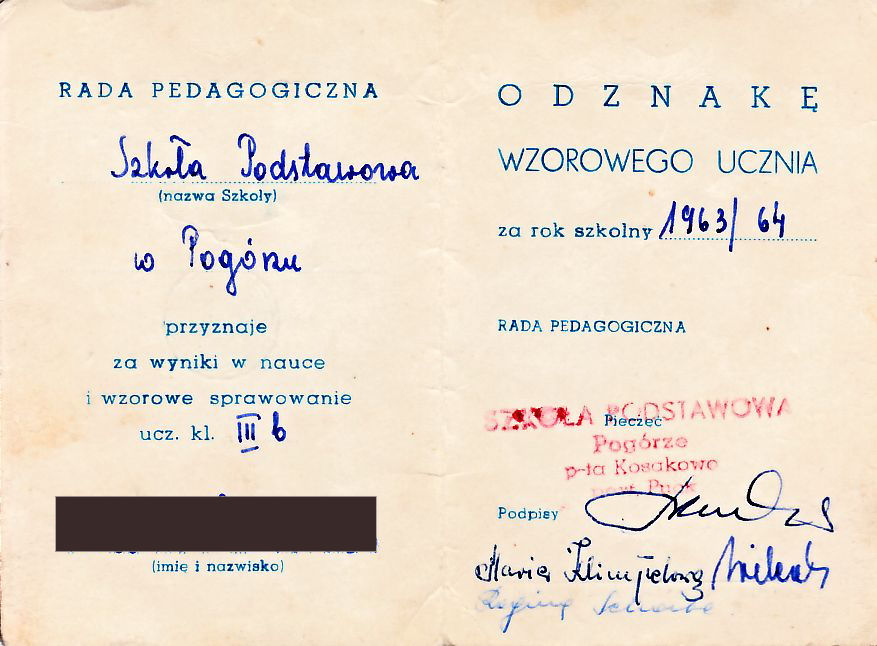 RADA PEDAGOGICZNA
Szkoła Podstawowa
(nazwa Szkoły)
w Pogórzu
przyznaje
za wyniki w nauce
i wzorowe sprawowanie
ucz. kl. III b
(imię i nazwisko)
ODZNAKĘ
WZOROWEGO UCZNIA
za rok szkolny 1963/64
RADA PEDAGOGICZNA
SZKOŁA PODSTAWOWA
Pieczęć
Pogórze
p-ta Kosakowo
pow. Puck
Podpisy
Maria